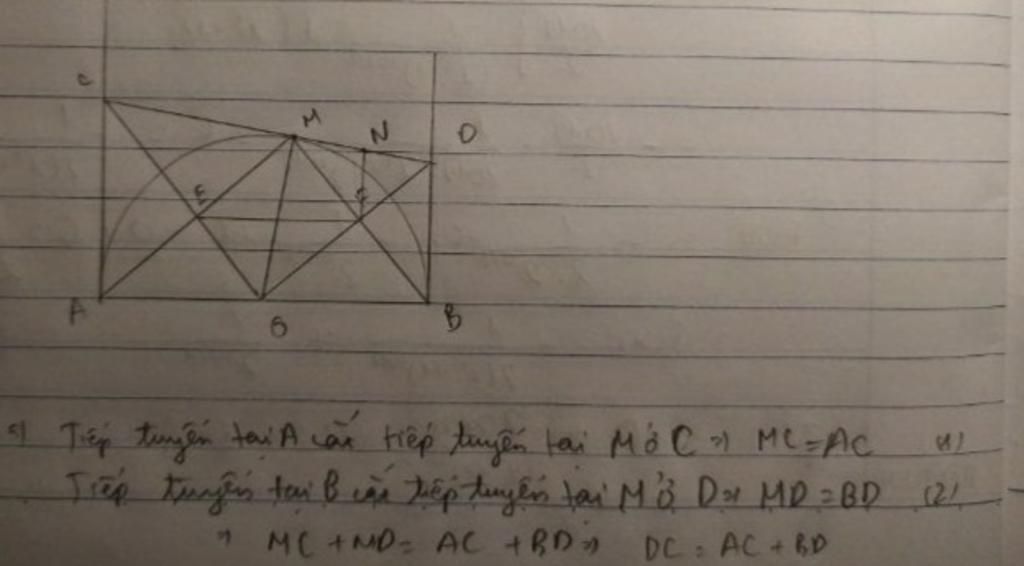 C
M
N
D
E
F
A
O
B
a) Tiếp tuyến tại A cắt tiếp tuyến tại M ở C => MC = AC (1)
Tiếp tuyến tại B cắt tiếp tuyến tại M ở D => MD = BD (2)
=> MC + MD = AC + BD => DC = AC + BD